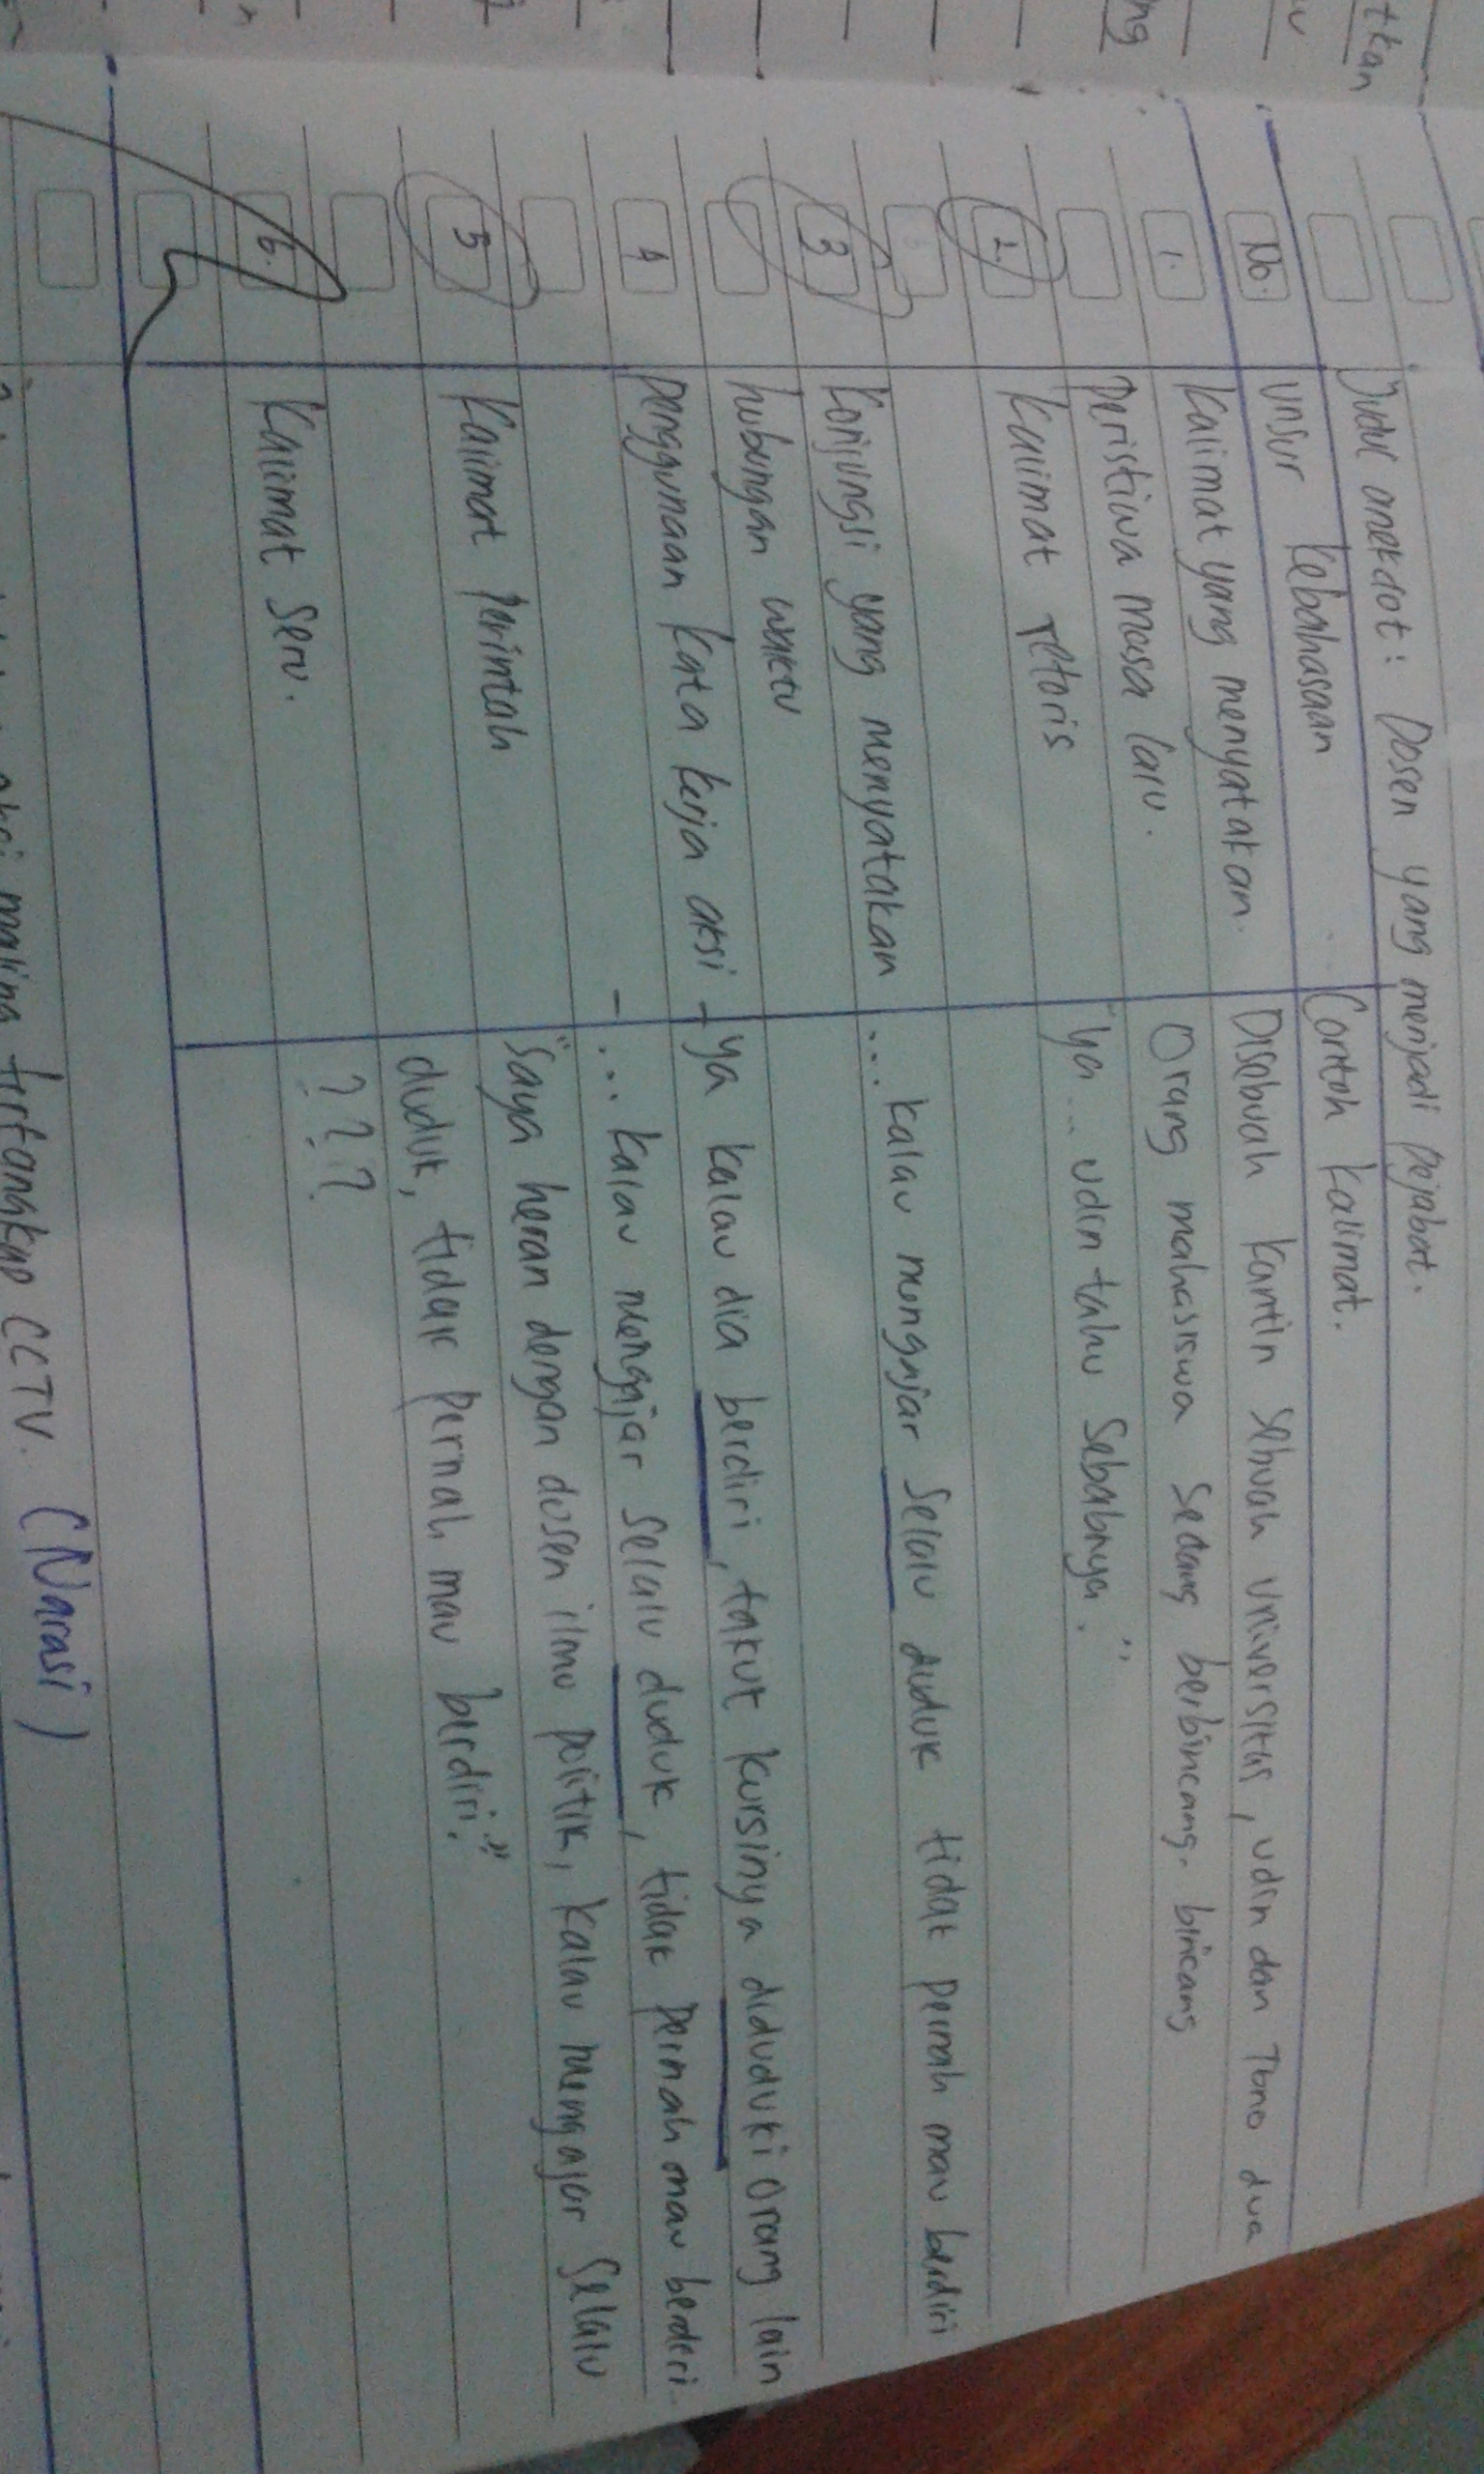 tkan
ng
Judul anekdot: Dosen yang menjadi pejabat.
No. Unsur Kebahasaan Contoh Kalimat.
1. Kalimat yang menyatakan Disebuah kantin sebuah universitas, udin dan Tono dua
peristiwa masa lalu. Orang mahasiswa sedang berbincang-bincang
2. Kalimat retoris "Ya... udin tahu sebabnya."
3 Konjungsi yang menyatakan ... kalau mengajar selalu duduk tidak pernah mau berdiri
hubungan waktu
4 penggunaan kata kerja aksi - ya kalau dia berdiri, takut kursinya diduduki orang lain
- ... kalau mengajar selalu duduk, tidak pernah mau berderi.
5 Kalimat perintah "Saya heran dengan dosen ilmu politik, kalau mengajar selalu
duduk, tidak pernah mau berdiri."
6. Kalimat seru. ? ? ?
maling tertangkap CCTV. (Narasi)